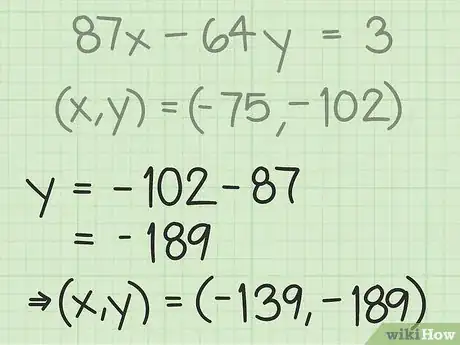 87x - 64y = 3
(x,y) = (-75,-102)
y = -102-87
= -189
⇒(x,y) = (-139,-189)
wikiHow